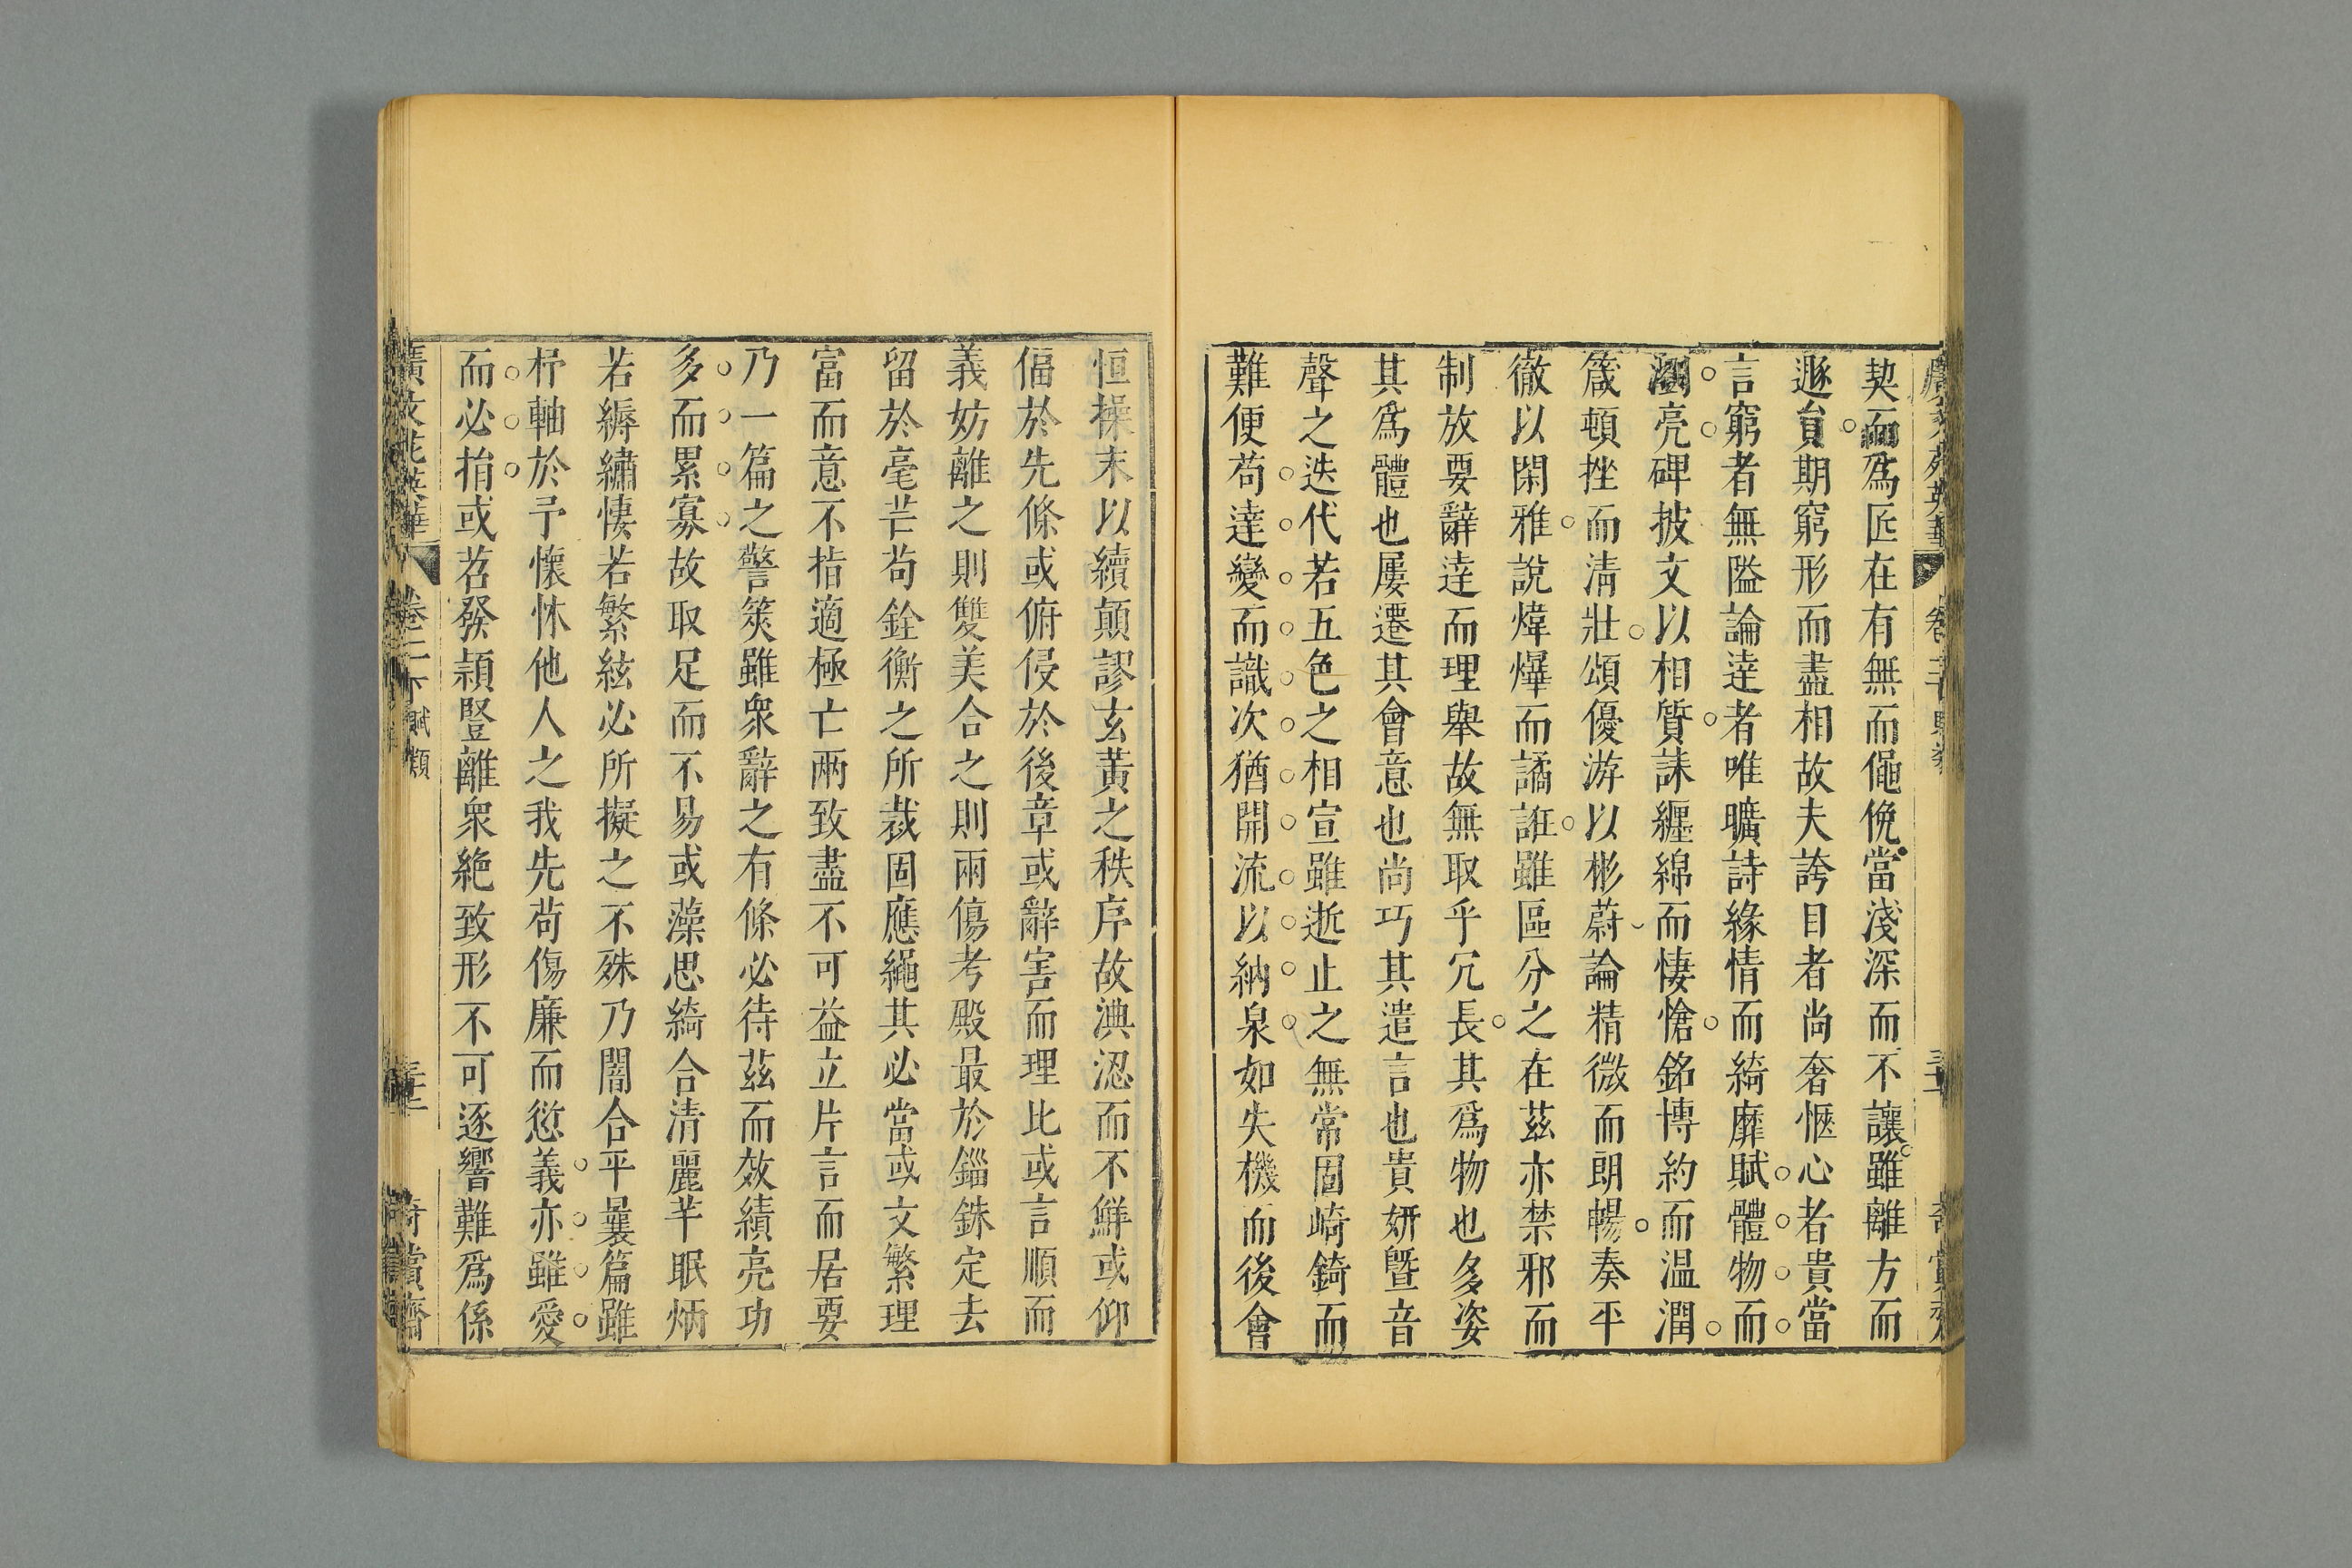 契而爲匠在有無而僶俛當淺深而不讓雖離方而
遯貟期窮形而盡相故夫誇目者尚奢愜心者貴當
言窮者無隘論達者唯曠詩緣情而綺靡賦體物而
瀏亮碑披文以相質誄纏綿而悽愴銘博約而温潤
箴頓挫而清壯頌優游以彬蔚論精微而朗暢奏平
徹以閑雅說煒燁而譎誑雖區分之在茲亦禁邪而
制放要辭達而理舉故無取乎冗長其爲物也多姿
其爲體也屢遷其會意也尚巧其遣言也貴姸曁音
聲之迭代若五色之相宣雖逝止之無常固崎錡而
難便苟達變而識次猶開流以納泉如失機而後會
恒操末以續顛謬玄黃之秩序故淟涊而不鮮或仰
偪於先條或俯侵於後章或辭害而理比或言順而
義妨離之則雙美合之則兩傷考殿最於錙銖定去
留於毫芒苟銓衡之所裁固應繩其必當或文繁理
富而意不指適極亡兩致盡不可益立片言而居要
乃一篇之警筴雖衆辭之有條必待茲而效績亮功
多而累寡故取足而不易或藻思綺合清麗芊眠炳
若縟繡悽若繁絃必所擬之不殊乃闇合乎曩篇雖
杼軸於予懷怵他人之我先苟傷廉而愆義亦雖愛
而必捐或苕發穎豎離衆絶致形不可逐響難爲係
廣文苑英華 卷二下 賦類